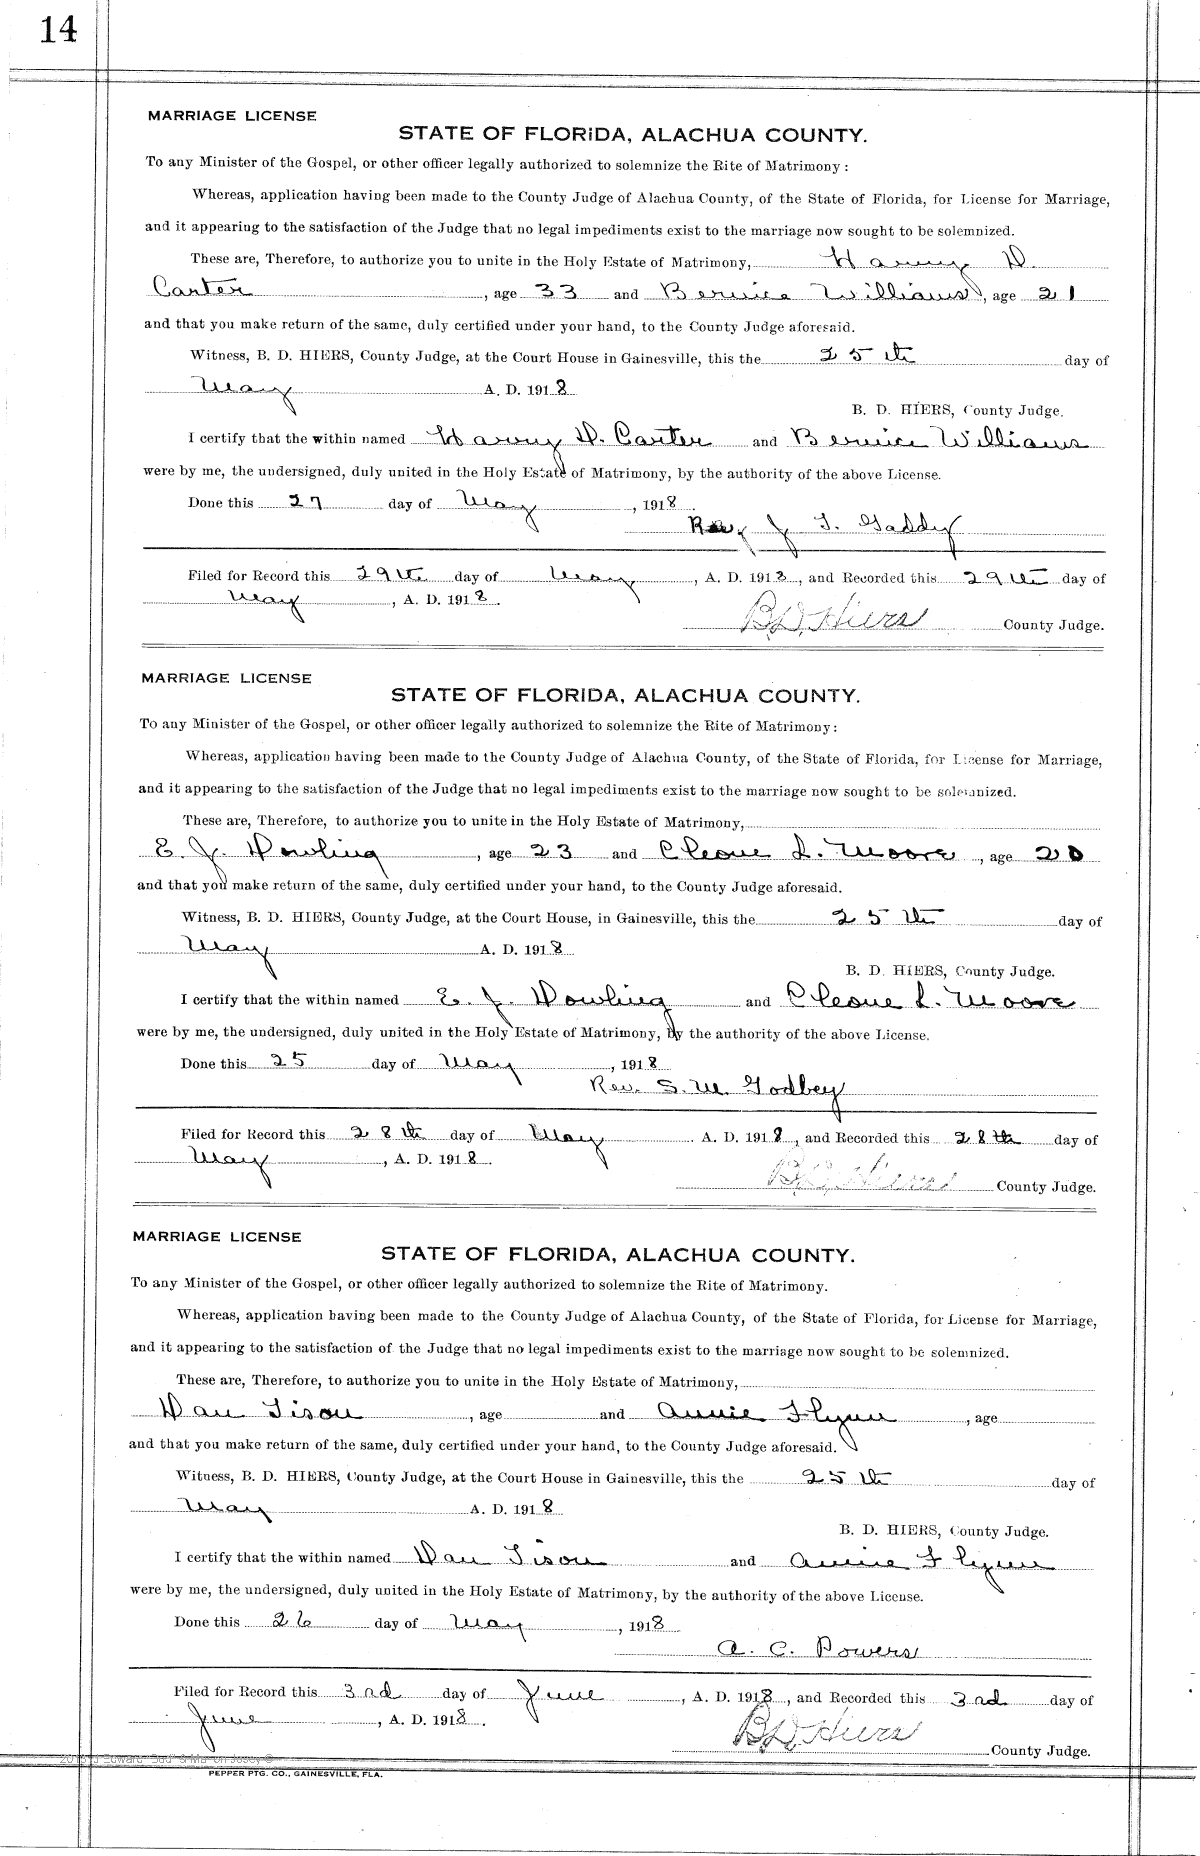 14
MARRIAGE LICENSE
STATE OF FLORIDA, ALACHUA COUNTY.
To any Minister of the Gospel, or other officer legally authorized to solemnize the Rite of Matrimony:
Whereas, application having been made to the County Judge of Alachua County, of the State of Florida, for License for Marriage,
and it appearing to the satisfaction of the Judge that no legal impediments exist to the marriage now sought to be solemnized.
These are, Therefore, to authorize you to unite in the Holy Estate of Matrimony, Harry D.
Carter, age 33 and Bernice Williams, age 21
and that you make return of the same, duly certified under your hand, to the County Judge aforesaid.
Witness, B. D. HIERS, County Judge, at the Court House in Gainesville, this the 25th day of
May A. D. 1918
B. D. HIERS, County Judge.
I certify that the within named Harry D. Carter and Bernice Williams
were by me, the undersigned, duly united in the Holy Estate of Matrimony, by the authority of the above License.
Done this 27 day of May, 1918
Rev J. T. Gaddy
Filed for Record this 29th day of May, A. D. 1918, and Recorded this 29th day of
May, A. D. 1918.
B D Hiers County Judge.
MARRIAGE LICENSE
STATE OF FLORIDA, ALACHUA COUNTY.
To any Minister of the Gospel, or other officer legally authorized to solemnize the Rite of Matrimony:
Whereas, application having been made to the County Judge of Alachua County, of the State of Florida, for License for Marriage,
and it appearing to the satisfaction of the Judge that no legal impediments exist to the marriage now sought to be solemnized.
These are, Therefore, to authorize you to unite in the Holy Estate of Matrimony,
E. J. Dowling, age 23 and Cleone L. Moore, age 20
and that you make return of the same, duly certified under your hand, to the County Judge aforesaid.
Witness, B. D. HIERS, County Judge, at the Court House, in Gainesville, this the 25th day of
May A. D. 1918
B. D. HIERS, County Judge.
I certify that the within named E. J. Dowling and Cleone L. Moore
were by me, the undersigned, duly united in the Holy Estate of Matrimony, by the authority of the above License.
Done this 25 day of May, 1918
Rev. S. M. Godbey
Filed for Record this 28th day of May A. D. 1918, and Recorded this 28th day of
May, A. D. 1918.
B D Hiers County Judge.
MARRIAGE LICENSE
STATE OF FLORIDA, ALACHUA COUNTY.
To any Minister of the Gospel, or other officer legally authorized to solemnize the Rite of Matrimony.
Whereas, application having been made to the County Judge of Alachua County, of the State of Florida, for License for Marriage,
and it appearing to the satisfaction of the Judge that no legal impediments exist to the marriage now sought to be solemnized.
These are, Therefore, to authorize you to unite in the Holy Estate of Matrimony,
Dan Tison, age and Annie Flynn, age
and that you make return of the same, duly certified under your hand, to the County Judge aforesaid.
Witness, B. D. HIERS, County Judge, at the Court House in Gainesville, this the 25th day of
May A. D. 1918
B. D. HIERS, County Judge.
I certify that the within named Dan Tison and Annie Flynn
were by me, the undersigned, duly united in the Holy Estate of Matrimony, by the authority of the above License.
Done this 26 day of May, 1918
A. C. Powers
Filed for Record this 3rd day of June, A. D. 1918, and Recorded this 3rd day of
June, A. D. 1918.
B D Hiers County Judge.
PEPPER PTG. CO., GAINESVILLE, FLA.